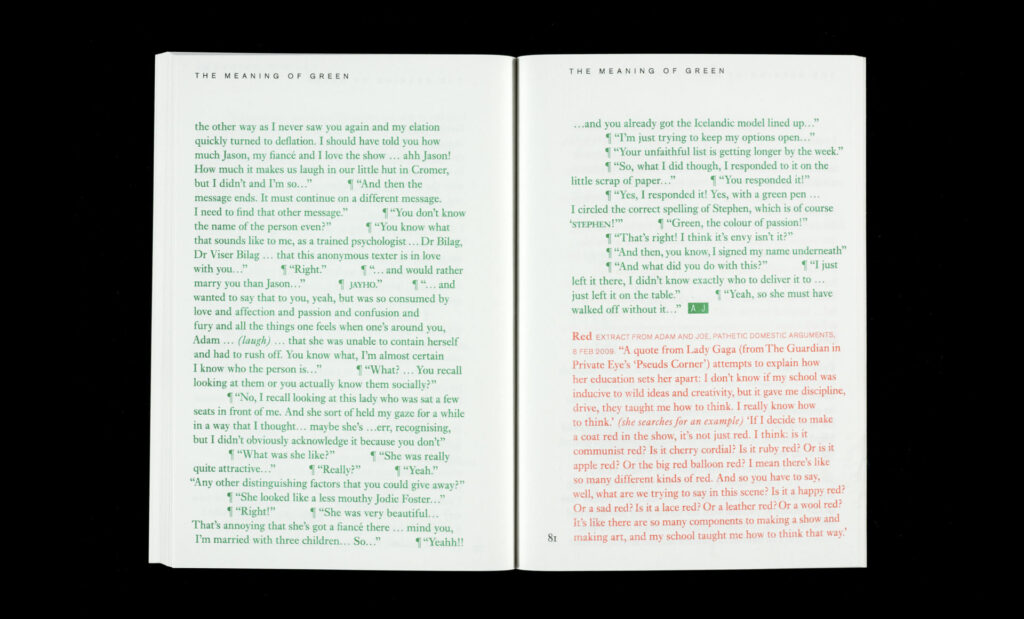 THE MEANING OF GREEN
the other way as I never saw you again and my elation
quickly turned to deflation. I should have told you how
much Jason, my fiancé and I love the show … ahh Jason!
How much it makes us laugh in our little hut in Cromer,
but I didn't and I'm so…” ¶ “And then the
message ends. It must continue on a different message.
I need to find that other message.” ¶ “You don't know
the name of the person even?” ¶ “You know what
that sounds like to me, as a trained psychologist … Dr Bilag,
Dr Viser Bilag … that this anonymous texter is in love
with you…” ¶ “Right.” ¶ “… and would rather
marry you than Jason…” ¶ JAYHO.” ¶ “… and
wanted to say that to you, yeah, but was so consumed by
love and affection and passion and confusion and
fury and all the things one feels when one's around you,
Adam … (laugh) … that she was unable to contain herself
and had to rush off. You know what, I'm almost certain
I know who the person is…” ¶ “What? … You recall
looking at them or you actually know them socially?”
¶ “No, I recall looking at this lady who was sat a few
seats in front of me. And she sort of held my gaze for a while
in a way that I thought… maybe she's …err, recognising,
but I didn't obviously acknowledge it because you don't”
¶ “What was she like?” ¶ “She was really
quite attractive…” ¶ “Really?” ¶ “Yeah.”
“Any other distinguishing factors that you could give away?”
¶ “She looked like a less mouthy Jodie Foster…”
¶ “Right!” ¶ “She was very beautiful…
That's annoying that she's got a fiancé there … mind you,
I'm married with three children… So…” ¶ “Yeahh!!
THE MEANING OF GREEN
…and you already got the Icelandic model lined up…”
¶ “I'm just trying to keep my options open…”
¶ “Your unfaithful list is getting longer by the week.”
¶ “So, what I did though, I responded to it on the
little scrap of paper…” ¶ “You responded it!”
¶ “Yes, I responded it! Yes, with a green pen …
I circled the correct spelling of Stephen, which is of course
‘STEPHEN!’” ¶ “Green, the colour of passion!”
¶ “That's right! I think it's envy isn't it?”
¶ “And then, you know, I signed my name underneath”
¶ “And what did you do with this?” ¶ “I just
left it there, I didn't know exactly who to deliver it to …
just left it on the table.” ¶ “Yeah, so she must have
walked off without it…” A J
Red EXTRACT FROM ADAM AND JOE, PATHETIC DOMESTIC ARGUMENTS,
8 FEB 2009. “A quote from Lady Gaga (from The Guardian in
Private Eye's ‘Pseuds Corner’) attempts to explain how
her education sets her apart: I don't know if my school was
inducive to wild ideas and creativity, but it gave me discipline,
drive, they taught me how to think. I really know how
to think.’ (she searches for an example) ‘If I decide to make
a coat red in the show, it's not just red. I think: is it
communist red? Is it cherry cordial? Is it ruby red? Or is it
apple red? Or the big red balloon red? I mean there's like
so many different kinds of red. And so you have to say,
well, what are we trying to say in this scene? Is it a happy red?
Or a sad red? Is it a lace red? Or a leather red? Or a wool red?
It's like there are so many components to making a show and
making art, and my school taught me how to think that way.’
81